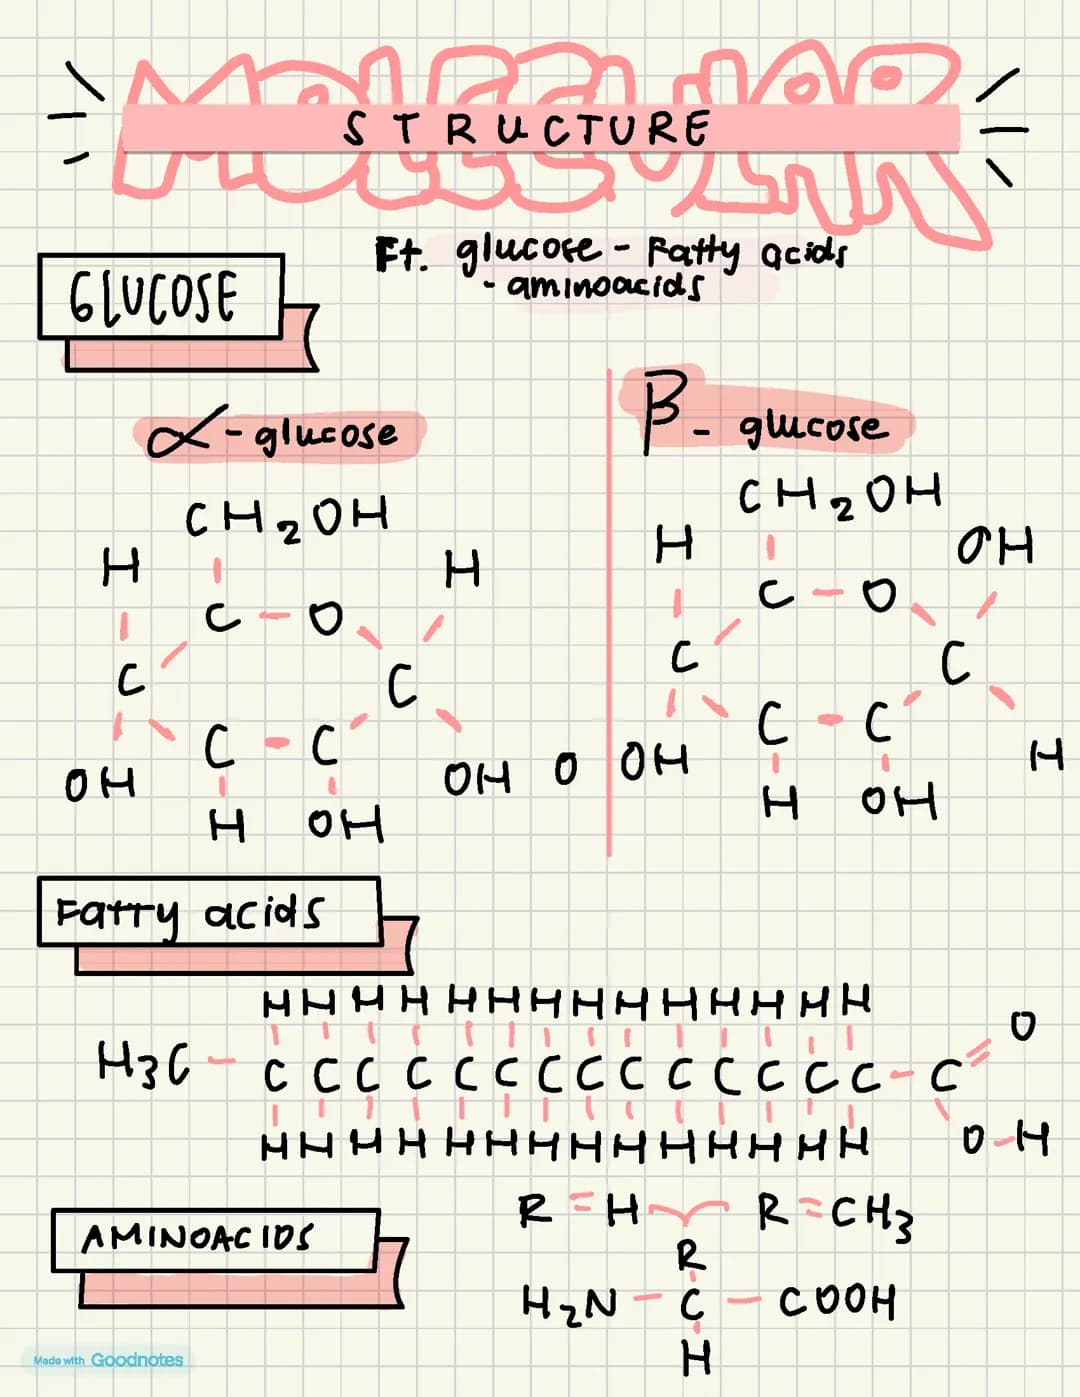 MOLECULAR
STRUCTURE
Ft. glucose - Fatty acids
- aminoacids
GLUCOSE
α - glucose
β - glucose
CH2OH
H H
C - O
C C
C - C
OH OH
H OH
O
CH2OH
H OH
C - O
C C
C - C
OH H
H OH
Fatty acids
H H H H H H H H H H H H H H
O
H3C - C C C C C C C C C C C C C C - C
H H H H H H H H H H H H H H
O-H
AMINOACIDS
R = H R = CH3
R
H2N - C - COOH
H
Made with Goodnotes